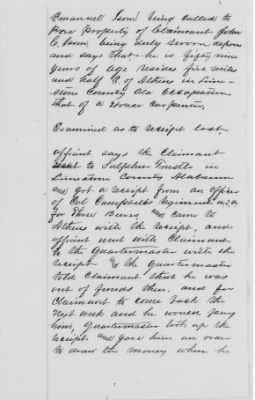 Emanuell Isom being called to
Prove Property of Claimant John
C. Isom, being duly sworn deposes
and says that he is fifty nine
Years of Age resides five miles
and half E of Athens in Lime
stone County Ala Occupation
that of a House carpenter,
Examined as to receipt lost
affiant says the Claimant
went to Sulphur Trustle in
Limestone County Alabama
and got a receipt from an officer
of Col Campbells Regiment
for Three Beeves, and came to
Athens with the receipt, and
affiant went with Claimant
to the Quartermaster with the
receipt & the Quartermaster
told Claimant that he was
out of funds then, and for
Claimant to come back the
next week and he would pay
him, Quartermaster took up the
receipt and gave him an order
to draw the money when he